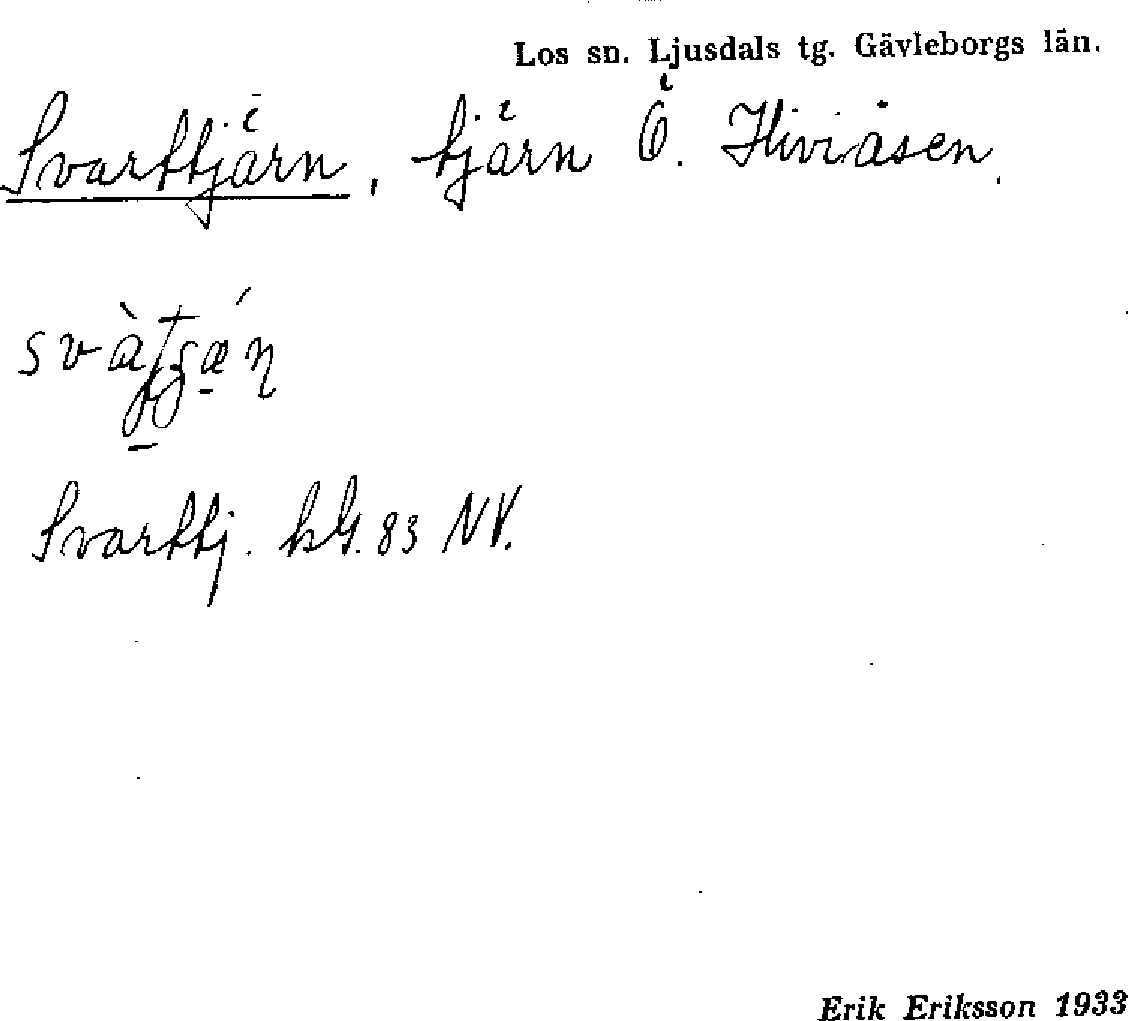 Los sn. Ljusdals tg. Gävleborgs län.
Svarttjärn, tjärn Ö. Hiviåsen.
Svarttj. hG. 83 NV.
Erik Eriksson 1933